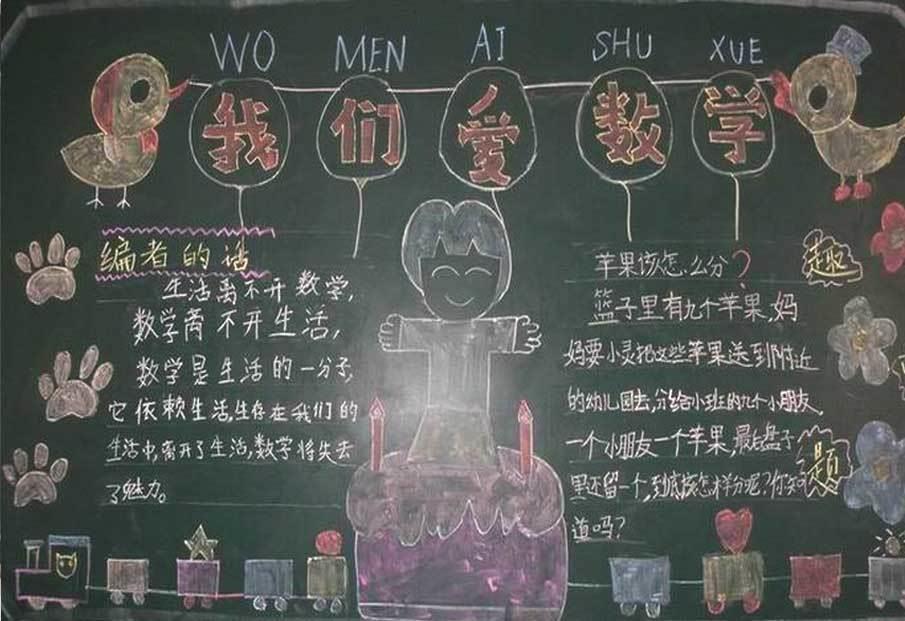 WO MEN AI SHU XUE
我们爱数学
编者的话
生活离不开数学,
数学离不开生活,
数学是生活的一分子,
它依赖生活,生存在我们的
生活中,离开了生活,数学将失去
了魅力。
苹果该怎么分?
篮子里有九个苹果,妈
妈要小灵把这些苹果送到附近
的幼儿园去,分给小班的九个小朋友,
一个小朋友一个苹果,最后盘子
里还留一个,到底该怎样分呢?你知
道吗?
趣
题